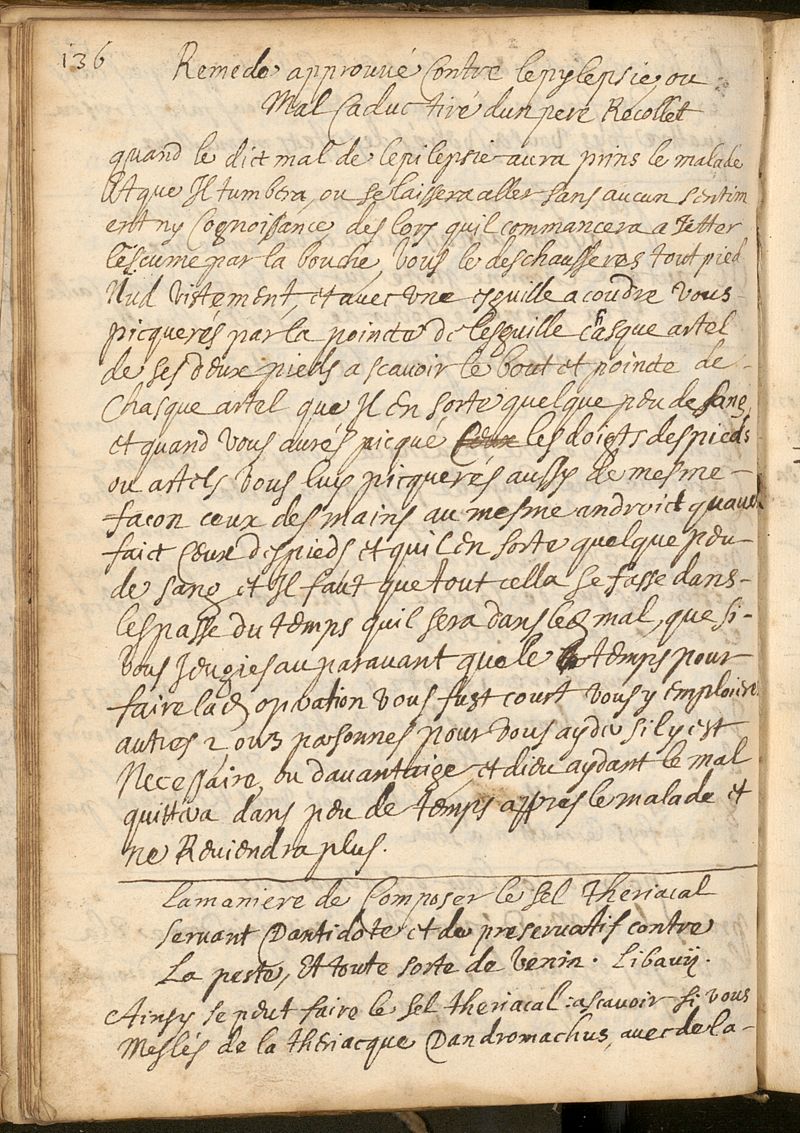 136
Remede approuué Contre lepylepsie, ou
Mal Caduc tiré dun pere Recollet
quand le dict mal de lepilepsie aura prins le malade
Et que Il tumbera, ou se laissera aller sans aucun sentim
ent ny Cognoissance des lors quil commancera a Jetter
lescume par la bouche, vous le deschausseres tout pied
Nud vistement, et auec vne esguille a coudre vous
picquerés par la poincte de lesguille chasque artel
de ses deux pieds a scauoir le bout et poincte de
Chasque artel que Il en sorte quelque peu de sang
et quand vous aurés picqué ceux les doigts des pieds
ou artels vous luy picquerés aussy de mesme
facon ceux des mains au mesme androict quaues
faict ceux des pieds et quil en sorte quelque peu
de sang et Il faut que tout cella se fasse dans
lespasse du temps quil sera dans led mal, que si
vous Jeugies au parauant que le temps pour
faire lad opration vous fust court vous y emploieres
autres 2 ou 3 personnes pour vous ayder sil y est
Necessaire, ou dauantaige, et dieu aydant le mal
quittera dans peu de temps appres le malade et
ne Reuiendra plus.
La maniere de Composer le sel theriacal
seruant Dantidote et de preseruatif contre
La peste, Et toute sorte de venin. Libauij.
Ainsy se peut faire le sel theriacal: ascauoir si vous
Meslés de la theriacque Dandromachus, auec de la